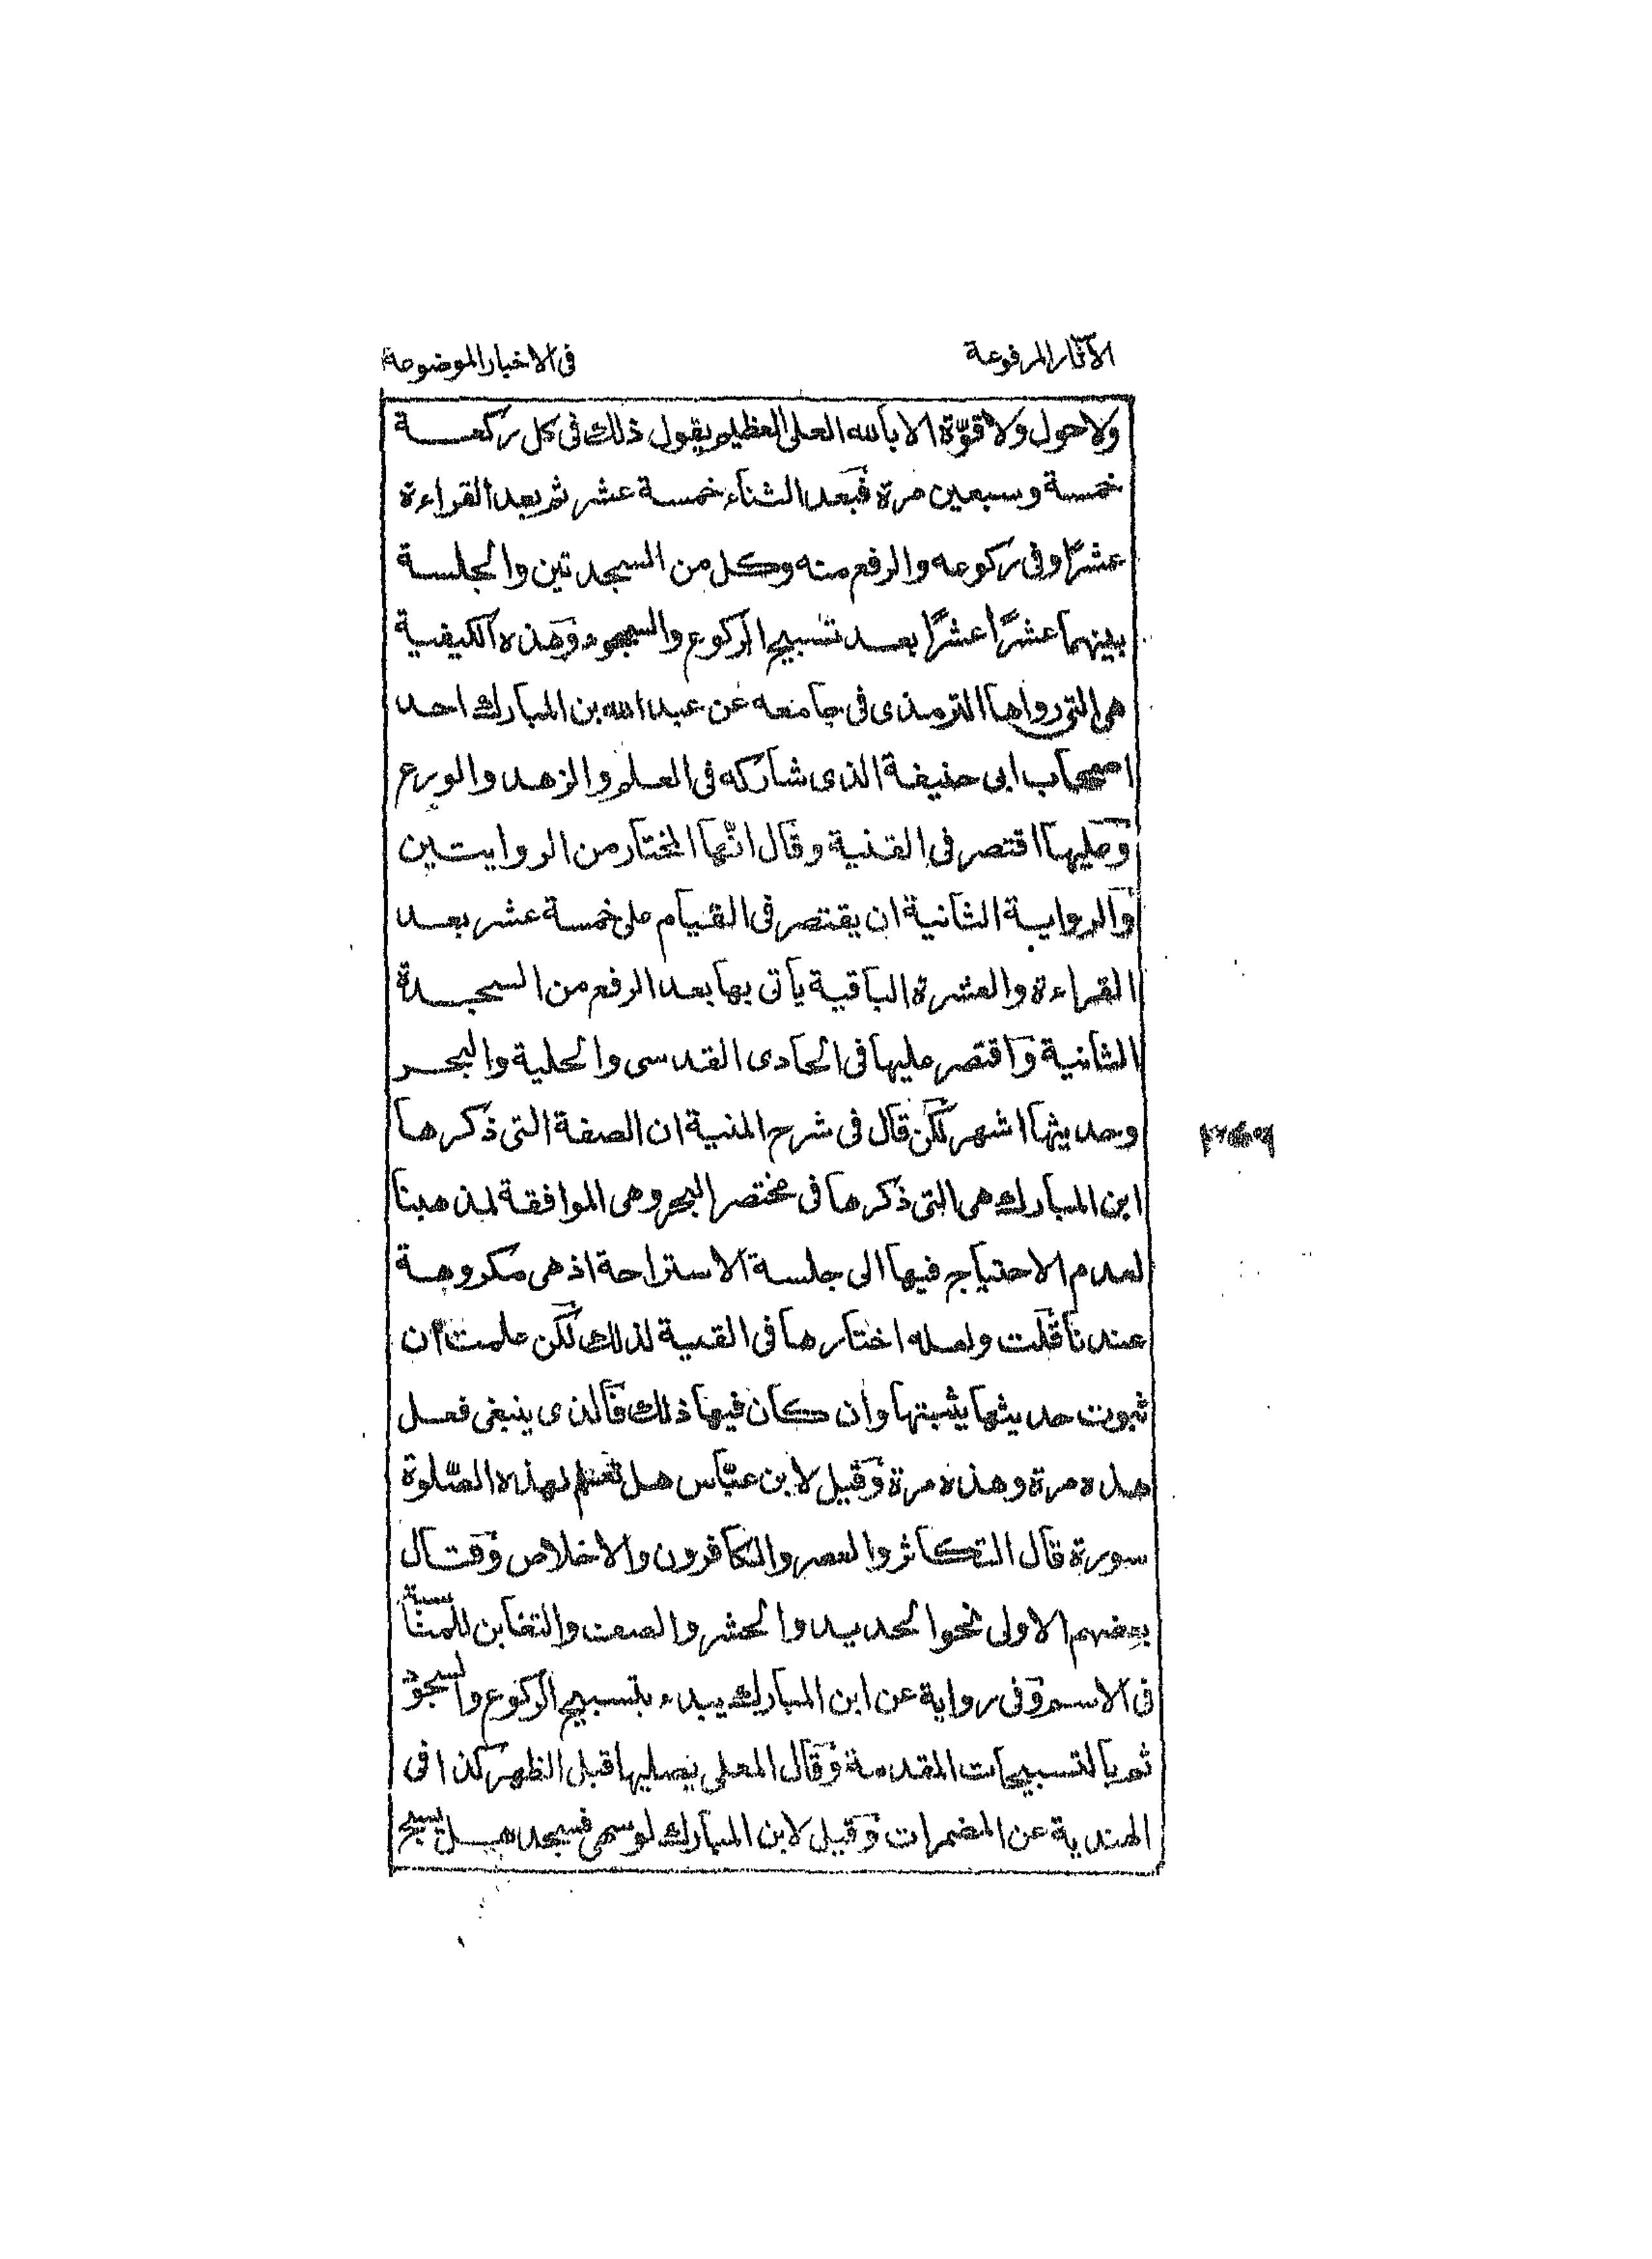 الآثار المرفوعة
فى الاخبار الموضوعة
ولا حول ولا قوّة الا بالله العلى العظيم يقول ذلك فى كل ركعة
خمسة وسبعين مرة فبعد الثناء خمسة عشر ثم بعد القراءة
عشرًا وفى ركوعه والرفع منه وكل من السجدتين والجلسة
بينهما عشرًا عشرًا بعد تسبيح الركوع والسجود وهذه الكيفية
هى التى رواها الترمذى فى جامعه عن عبد الله بن المبارك احد
اصحاب ابى حنيفة الذى شاركه فى العلم والزهد والورع
وعليها اقتصر فى القنية وقال انها المختار من الروايتين
والرواية الثانية ان يقتصر فى القيام على خمسة عشر بعد
القراءة والعشرة الباقية يأتى بها بعد الرفع من السجدة
الثانية واقتصر عليها فى الحادى القدسى والحلية والبحر
وحديثها اشهر لكن قال فى شرح المنية ان الصفة التى ذكرها
ابن المبارك هى التى ذكرها فى مختصر البحر وهى الموافقة لمذهبنا
لعدم الاحتياج فيها الى جلسة الاستراحة اذ هى مكروهة
عندنا قلت ولعله اختارها فى القنية لذلك لكن علمت ان
ثبوت حديثها يثبتها وان كان فيها ذلك فالذى ينبغى فعل
هذه مرة وهذه مرة وقيل لابن عبّاس هل تعلم لهذه الصّلوة
سورة قال التكاثر والعصر والكافرون والاخلاص وقال
بعضهم الاولى نحو الحديد والحشر والصف والتغابن للمناسبة
فى الاسم وفى رواية عن ابن المبارك يبدء بتسبيح الركوع والسجود
ثم بالتسبيحات المقدمة وقال المعلى يصليها قبل الظهر كذا فى
الهندية عن المضمرات وقيل لابن المبارك لو سهى فسجد هل يسبح